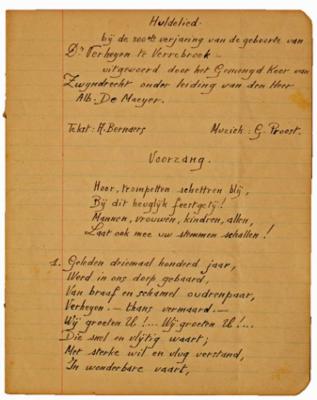 Huldelied.
bij de 300ste verjaring van de geboorte van
Dr Verheyen te Verrebroek –
uitgevoerd door het Gemengd Koor van
Zwyndrecht onder leiding van den Heer
Alb. De Maeyer.
Tekst: H. Bernaers. Muziek: G. Proost.
Voorzang.
Hoor, trompetten schettren blij,
Bij dit heuglijk feestgetij!
Mannen, vrouwen, kindren, allen,
Laat ook mee uw stemmen schallen!
1. Geleden driemaal honderd jaar,
Werd in ons dorp gebaard,
Van braaf en schamel oudrenpaar,
Verheyen – thans vermaard. –
Wij groeten U!... Wij groeten U!...
Die snel en vlijtig waart;
Met sterke wil en vlug verstand,
In wonderbare vaart,